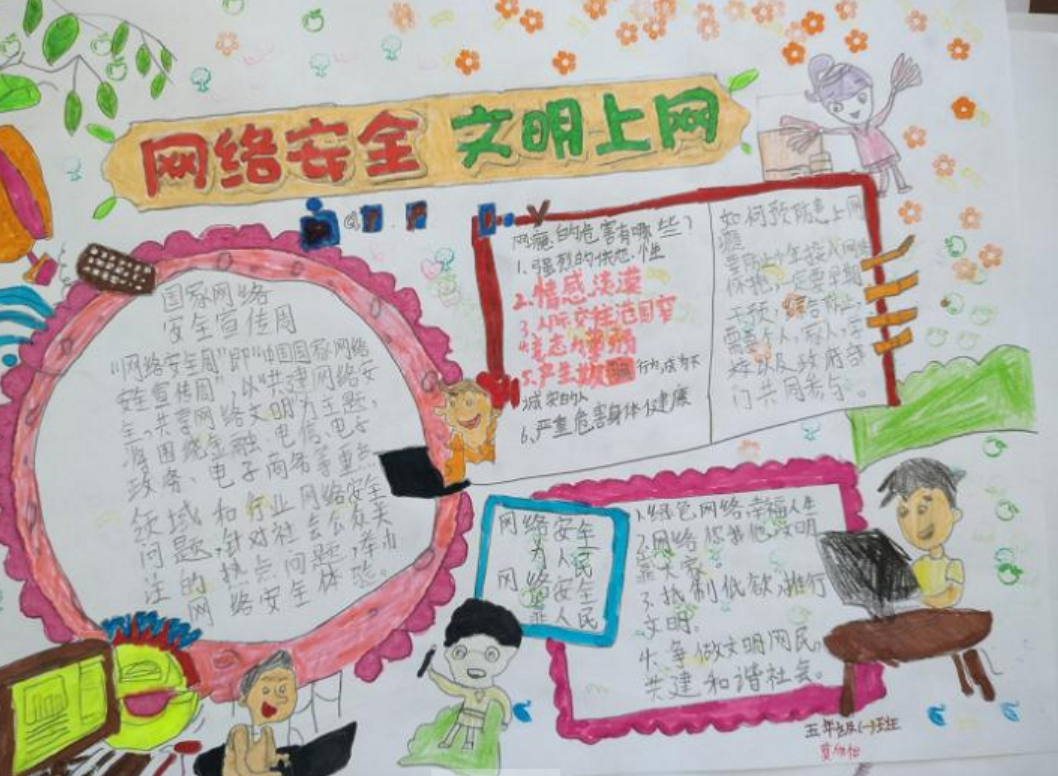 网络安全 文明上网
国家网络
安全宣传周
“网络安全周”即“中国国家网络
安全宣传周”,以“共建网络安
全,共享网络文明”为主题,
围绕金融、电信、电子
政务、电子商务等重点
领域和行业网络安全
问题,针对社会公众关
注的热点问题,举办
网络安全体验。
网瘾的危害有哪些?
1.强烈的依恋性
2.情感淡漠
3.人际交往范围窄
4.意志
5.产生 行为,成为不
诚实的人
6.严重危害身体健康
如何预防上网
瘾
要防止少年投入网络
怀抱,一定要早期
干预,综合防止,
需要个人,家人,学
校以及政府部
门共同参与。
网络安全
为人民
网络安全
靠人民
1.绿色网络幸福人生
2.网络你我他文明
靠大家
3.抵制低欲,推行
文明.
4.争做文明网民,
共建和谐社会。
五年级(一)班